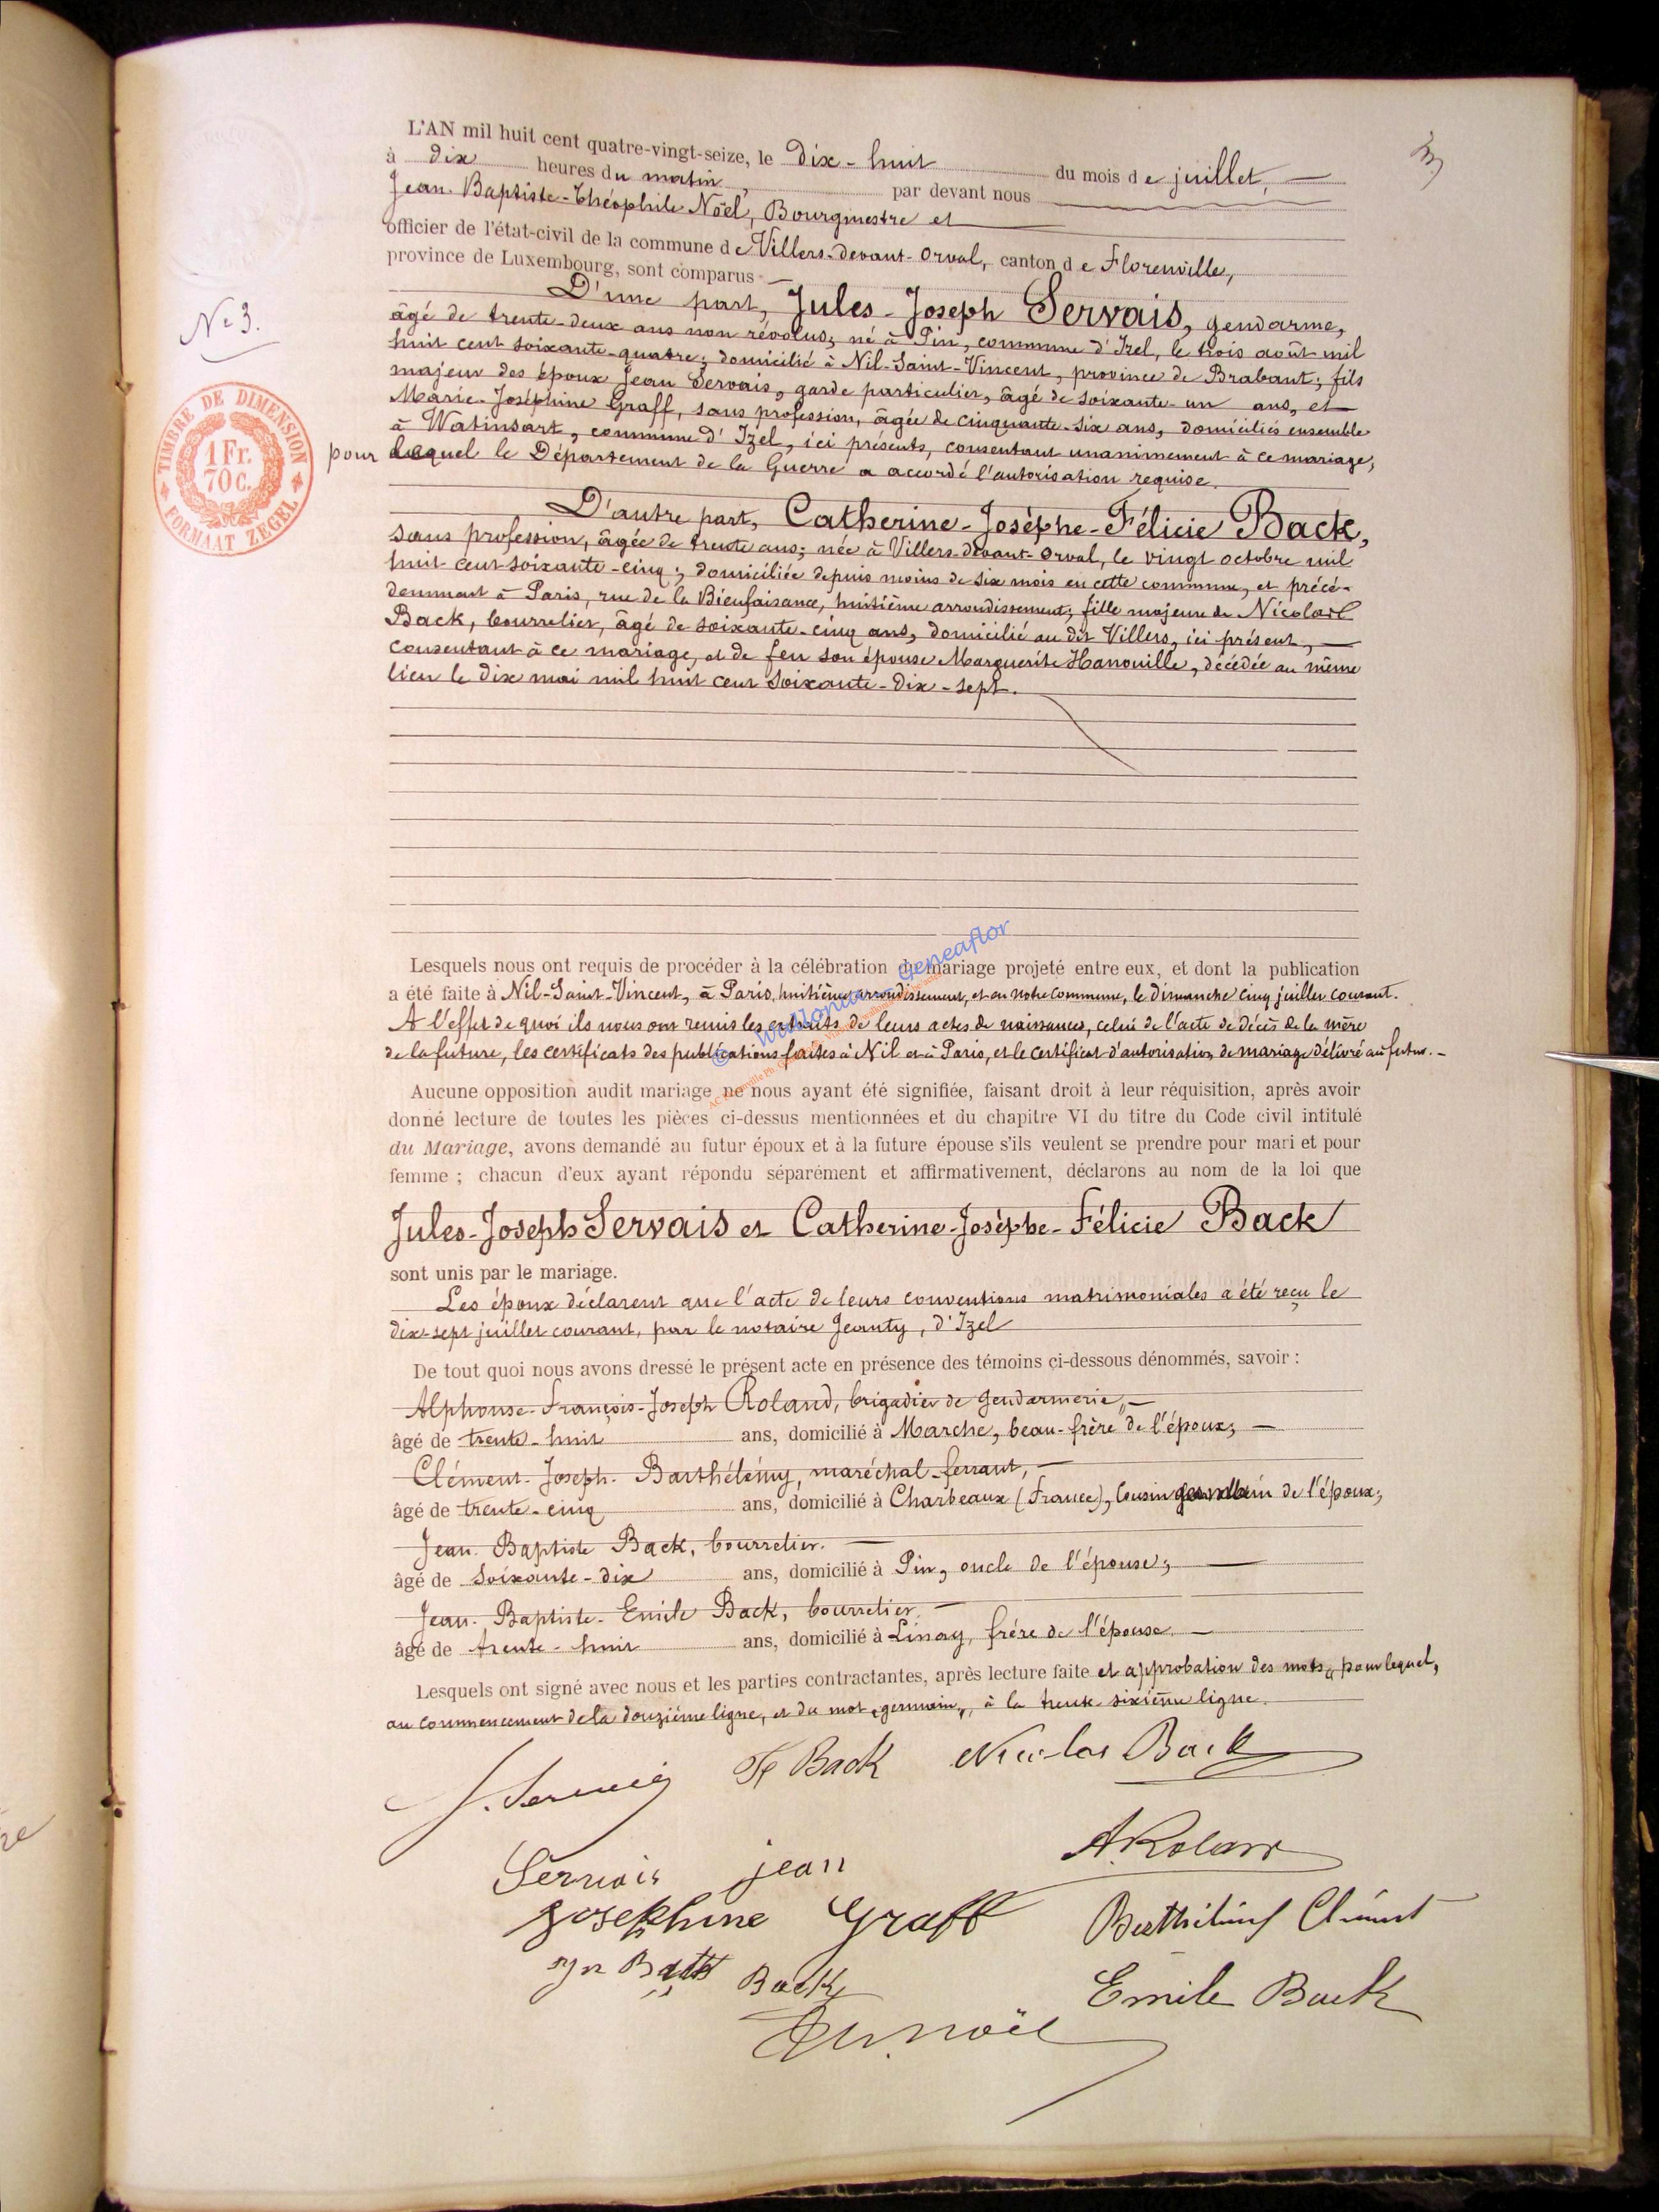 3
L'AN mil huit cent quatre-vingt-seize, le dix-huit du mois de juillet,
à dix heures du matin, par devant nous
Jean-Baptiste-Théophile Noël, Bourgmestre et
officier de l'état-civil de la commune de Villers-devant-Orval, canton de Florenville,
province de Luxembourg, sont comparus
N° 3.
D'une part, Jules-Joseph Servais, gendarme,
âgé de trente-deux ans non révolus; né à Pin, commune d'Izel, le trois août mil
huit cent soixante-quatre; domicilié à Nil-Saint-Vincent, province de Brabant; fils
majeur des époux Jean Servais, garde particulier, âgé de soixante-un ans, et
Marie-Joséphine Graff, sans profession, âgée de cinquante-six ans, domiciliés ensemble
à Watinsart, commune d'Izel, ici présents, consentant unanimement à ce mariage,
pour lequel le Département de la Guerre a accordé l'autorisation requise.
TIMBRE DE DIMENSION
1 Fr.
70 c.
FORMAAT ZEGEL
D'autre part, Catherine-Josèphe-Félicie Back,
sans profession, âgée de trente ans; née à Villers-devant-Orval, le vingt octobre mil
huit-cent-soixante-cinq; domiciliée depuis moins de six mois en cette commune, et précé-
demment à Paris, rue de la Bienfaisance, huitième arrondissement; fille majeure de Nicolas
Back, bourrelier, âgé de soixante-cinq ans, domicilié au dit Villers, ici présent,
consentant à ce mariage, et de feu son épouse Marguerite Hanouille, décédée au même
lieu le dix mai mil huit cent soixante-dix-sept.
Lesquels nous ont requis de procéder à la célébration du mariage projeté entre eux, et dont la publication
a été faite à Nil-Saint-Vincent, à Paris, huitième arrondissement, et en notre commune, le dimanche cinq juillet courant.
A l'effet de quoi ils nous ont remis les extraits de leurs actes de naissances, celui de l'acte de décès de la mère
de la future, les certificats des publications faites à Nil et à Paris, et le certificat d'autorisation de mariage délivré au futur.
© Wallonia - Geneaflor
Aucune opposition audit mariage ne nous ayant été signifiée, faisant droit à leur réquisition, après avoir
donné lecture de toutes les pièces ci-dessus mentionnées et du chapitre VI du titre du Code civil intitulé
du Mariage, avons demandé au futur époux et à la future épouse s'ils veulent se prendre pour mari et pour
femme ; chacun d'eux ayant répondu séparément et affirmativement, déclarons au nom de la loi que
Jules-Joseph Servais et Catherine-Josèphe-Félicie Back
sont unis par le mariage.
Les époux déclarent que l'acte de leurs conventions matrimoniales a été reçu le
dix-sept juillet courant, par le notaire Jeanty, d'Izel
De tout quoi nous avons dressé le présent acte en présence des témoins ci-dessous dénommés, savoir :
Alphonse-François-Joseph Roland, brigadier de gendarmerie,
âgé de trente-huit ans, domicilié à Marche, beau-frère de l'époux;
Clément-Joseph-Barthélémy, maréchal-ferrant,
âgé de trente-cinq ans, domicilié à Charbeaux (France), cousin germain de l'époux;
Jean-Baptiste Back, bourrelier.
âgé de soixante-dix ans, domicilié à Pin, oncle de l'épouse;
Jean-Baptiste-Emile Back, bourrelier
âgé de trente-huit ans, domicilié à Linay, frère de l'épouse
Lesquels ont signé avec nous et les parties contractantes, après lecture faite et approbation des mots „pour lequel„
au commencement de la douzième ligne, et du mot „germain„, à la trente-sixième ligne.
J. Servais F Back Nicolas Back
Servais jean A. Roland
Josephine Graff Barthélémy Clément
Back Emile Back
Th. Noël